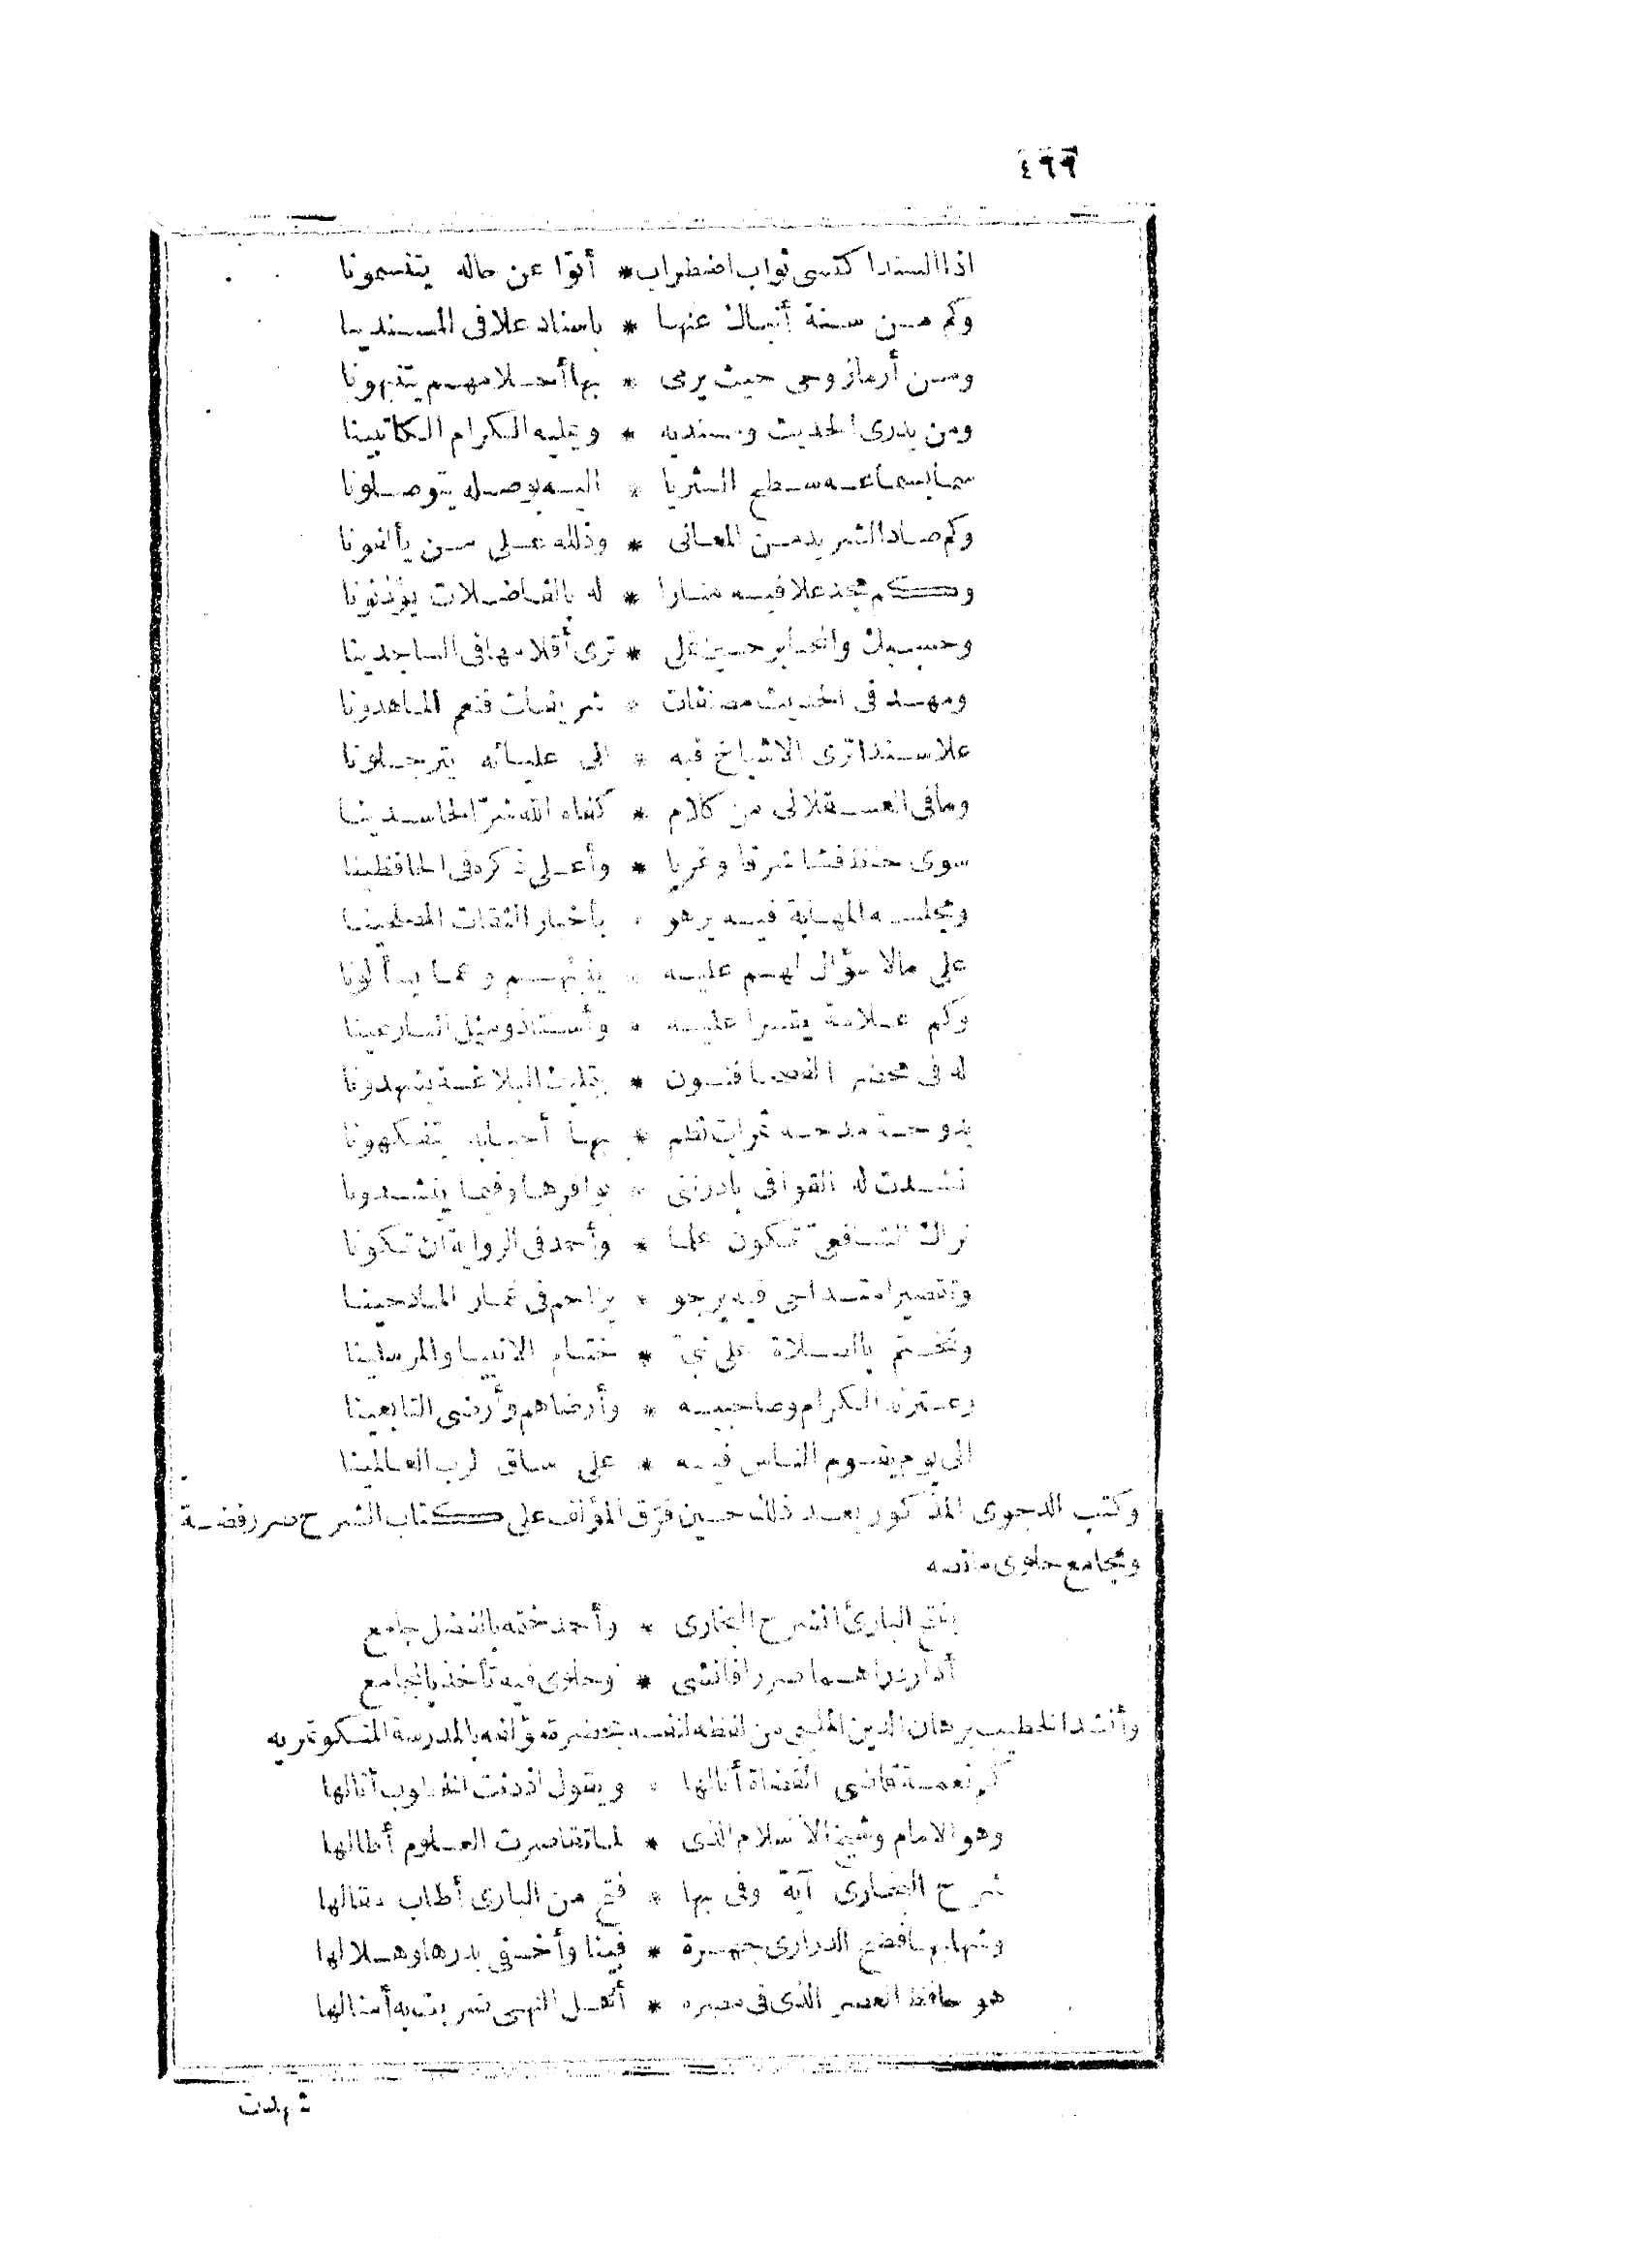 ٤٩٩
اذا السند اكتسى ثواب اضطراب * أتوا عن حاله يتفسمونا
وكم من سنة أنباك عنها * باسناد علا فى المسندينا
ومن أرماز وحى حيث يرمى * بها أحلامهم يتنبهونا
ومن يدرى الحديث ومسنديه * ويمليه الكرام الكاتبينا
سما بسماعه سطح الثريا * اليه بوصله يتوصلونا
وكم صاد الشريد من المعانى * وذلله على من يألفونا
وكم مجد علا فيه منارا * له بالفاضلات يؤذنونا
وحسبك والمحابر حين تملى * ترى أقلامها فى الساجدينا
ومهد فى الحديث مصنفات * شريفات فنعم الماهدونا
علا سندا ترى الاشياخ فيه * الى عليائه يترجلونا
وما فى العسقلانى من كلام * كفاه الله شر الحاسدينا
سوى حفظ فشا شرقا وغربا * وأعلى ذكره فى الحافظينا
ومجلسه المهابة فيه يزهو * بأخبار الثقات
على مالا سؤال لهم عليه * ينبئهم وعما يسألونا
وكم علامة يقرا عليه * وأستاذ ومثل البارعينا
له فى محضر الفصحا فنون * بتمليك البلاغة يشهدونا
بدوحة مدحه ثمرات نظم * بها أحبابه يتفكهونا
نشدت له القوافى بادرتنى * بوافرها وفيما ينشدونا
نراك الشافعى تكون علما * وأحمد فى الرواية ان تكونا
وتقصير امتداحى فيه يرجو * يزاحم فى غمار المادحينا
ونختم بالصلاة على نبى * ختام الانبيا والمرسلينا
وعترته الكرام وصاحبيه * وأرضاهم وأرضى التابعينا
الى يوم يقوم الناس فيه * على ساق لرب العالمينا
وكتب الدجوى المذكور بعد ذلك حين فرق المؤلف على كتاب الشرح صرر فضة
ومجامع حلوى مانصه
بفتح البارئ انشرح البخارى * وأحمد ختمه بالفضل جامع
أدار دراهما صررا فانشى * وحلوى فيه تأخذ بالمجامع
وأنشد الخطيب برهان الدين المليجى من لفظه لنفسه بحضرة مؤلفه بالمدرسة المنكوتمريه
كم نعمة قاضى القضاة أنالها * ويقول اذ دنت القلوب أنالها
وهو الامام وشيخ الاسلام الذى * لما تقاصرت العلوم أطالها
شرح البخارى آية وفى بها * فتح من البارى أطاب مقالها
وشهابها فضح الدرارى جهرة * فينا وأخفى بدرها وهلالها
هو حافظ العصر الذى فى مصره * أهل النهى ضربت به أمثالها